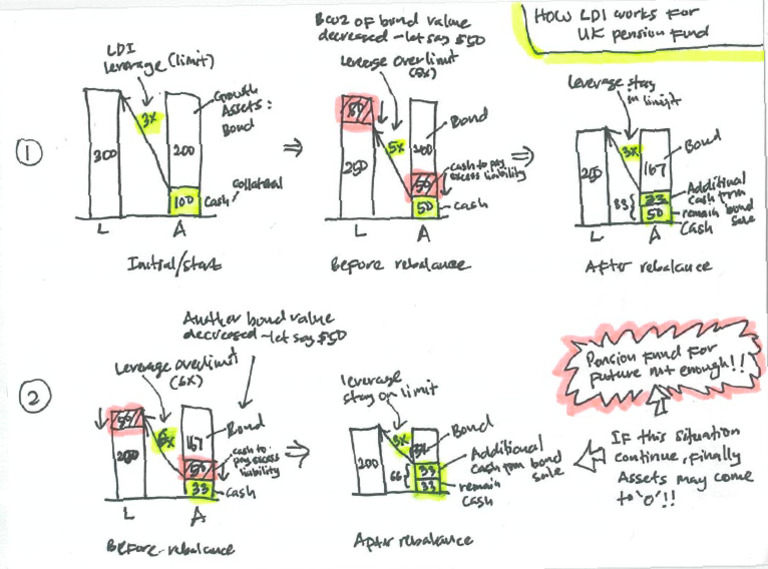 HOW LDI works for
UK pension fund
①
LDI
leverage (limit)
3x
300
200
100
Growth
Assets:
Bond
collateral
Cash
L
A
Initial/start
⇒
Bcoz of bond value
decreased - let say $50
leverage over limit
(5x)
50
250
5x
200
50
50
Bond
cash to pay
excess liability
cash
L
A
Before rebalance
⇒
leverage stay
in limit
3x
250
167
33
50
83
Bond
Additional
cash from
remain bond
sale
Cash
L
A
After rebalance
②
Another bond value
decreased - let say $50
leverage overlimit
(6x)
50
167
50
33
Bond
cash to
pay excess
liability
cash
L
A
Before rebalance
⇒
leverage
stay on limit
3x
200
66
33
33
Bond
Additional
cash from bond
sale
remain
cash
After rebalance
Pension fund for
future not enough!!
If this situation
continue, finally
Assets may come
to '0'!!